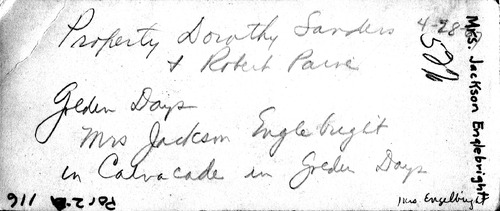 Property Dorothy Sanders
& Robert Paine
Golden Days
Mrs Jackson Englebright
in Calvacade in Golden Days
4-28-
Mrs. Jackson Englebright
Mrs. Engelbright
116